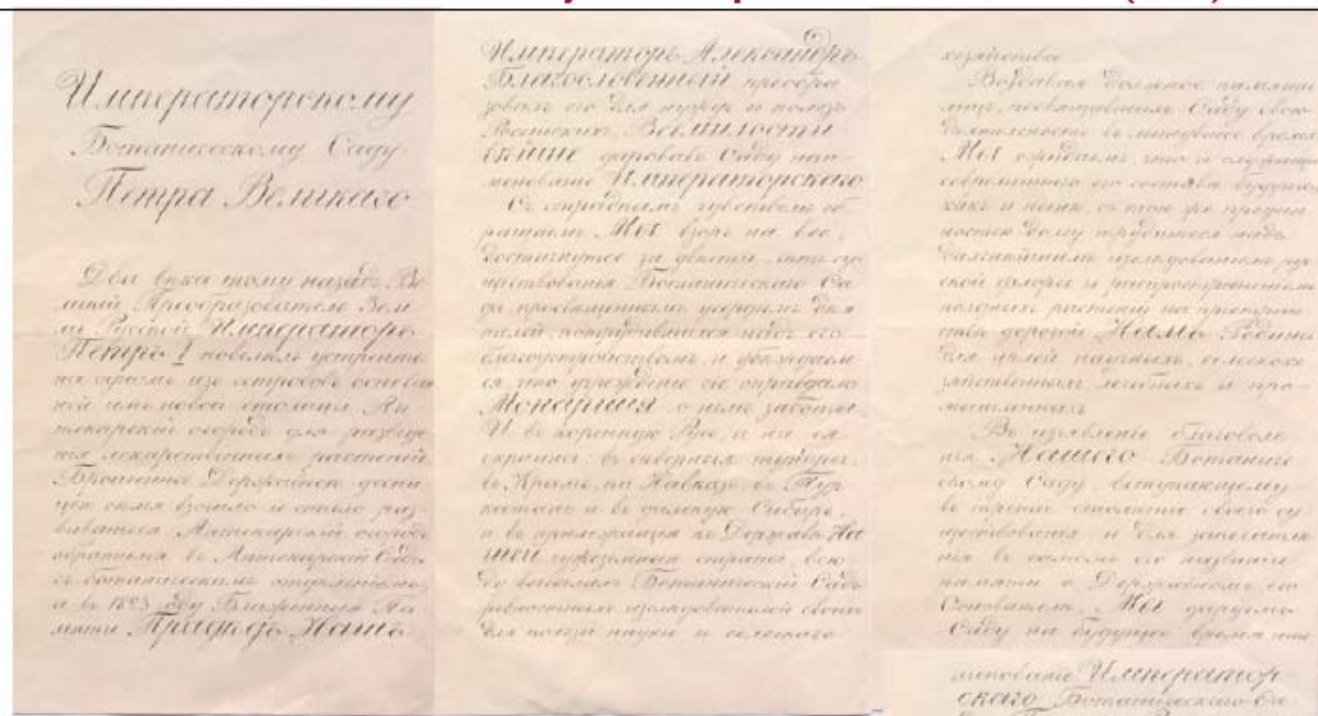 Императорскому
Ботаническому Саду
Петра Великаго
Два вѣка тому назадъ Ве
ликій Преобразователь Зем
ли Русской Императоръ
Петръ I повелѣлъ устроить
на одномъ изъ острововъ основан
ной имъ новой столицы Ап
текарскій огородъ для разведе
нія лекарственныхъ растеній
Брошенное Державною десни
цею сѣмя взошло и стало раз
виваться Аптекарскій огородъ
обратился въ Аптекарскій Садъ
съ ботаническимъ отдѣленіемъ,
а въ 1823 году Блаженныя Па
мяти Прадѣдъ Нашъ
Императоръ Александръ
Благословенный преобра
зовалъ его для нуждъ и пользъ
Россійскихъ Всемилости
вѣйше даровавъ Саду наи
менованіе Императорскаго
Съ отраднымъ чувствомъ об
ращаемъ Мы взоръ на все,
достигнутое за двѣсти лѣтъ су
ществованія Ботаническаго Са
да просвѣщеннымъ усердіемъ дѣя
телей, потрудившихся надъ его
благоустройствомъ, и убѣждаем
ся, что учрежденіе сіе оправдало
Монаршия о немъ заботы.
И въ коренную Русь, и на ея
окраины: въ сѣверныя тундры,
въ Крымъ, на Кавказъ, въ Тур
кестанъ и въ далекую Сибирь,
а въ прилежащія къ Державѣ На
шей чужеземныя страны, всю
ду высылалъ Ботаническій Садъ
ревностныхъ изслѣдователей своихъ
для пользы науки и сельскаго
хозяйства
Воздавая должное памяти
лицъ, посвящавшихъ Саду свою
дѣятельность въ минувшее время
Мы ожидаемъ, что и служащіе
современнаго его состава будутъ
какъ и понынѣ, съ тою же предан
ностью долгу трудиться надъ
дальнѣйшимъ изслѣдованіемъ рус
ской флоры и распространеніемъ
полезныхъ растеній на простран
ствѣ дорогой Намъ Родины
для цѣлей научныхъ, сельскохо
зяйственныхъ, лечебныхъ и про
мышленныхъ
Въ изъявленіе благоволе
нія Нашего Ботаниче
скому Саду, вступающему
въ третье столѣтіе своего су
ществованія и для запечатлѣ
нія въ самомъ его названіи
памяти о Державномъ его
Основателѣ, Мы даруемъ
Саду на будущее время наи
менованіе Император
скаго Ботаническаго Са